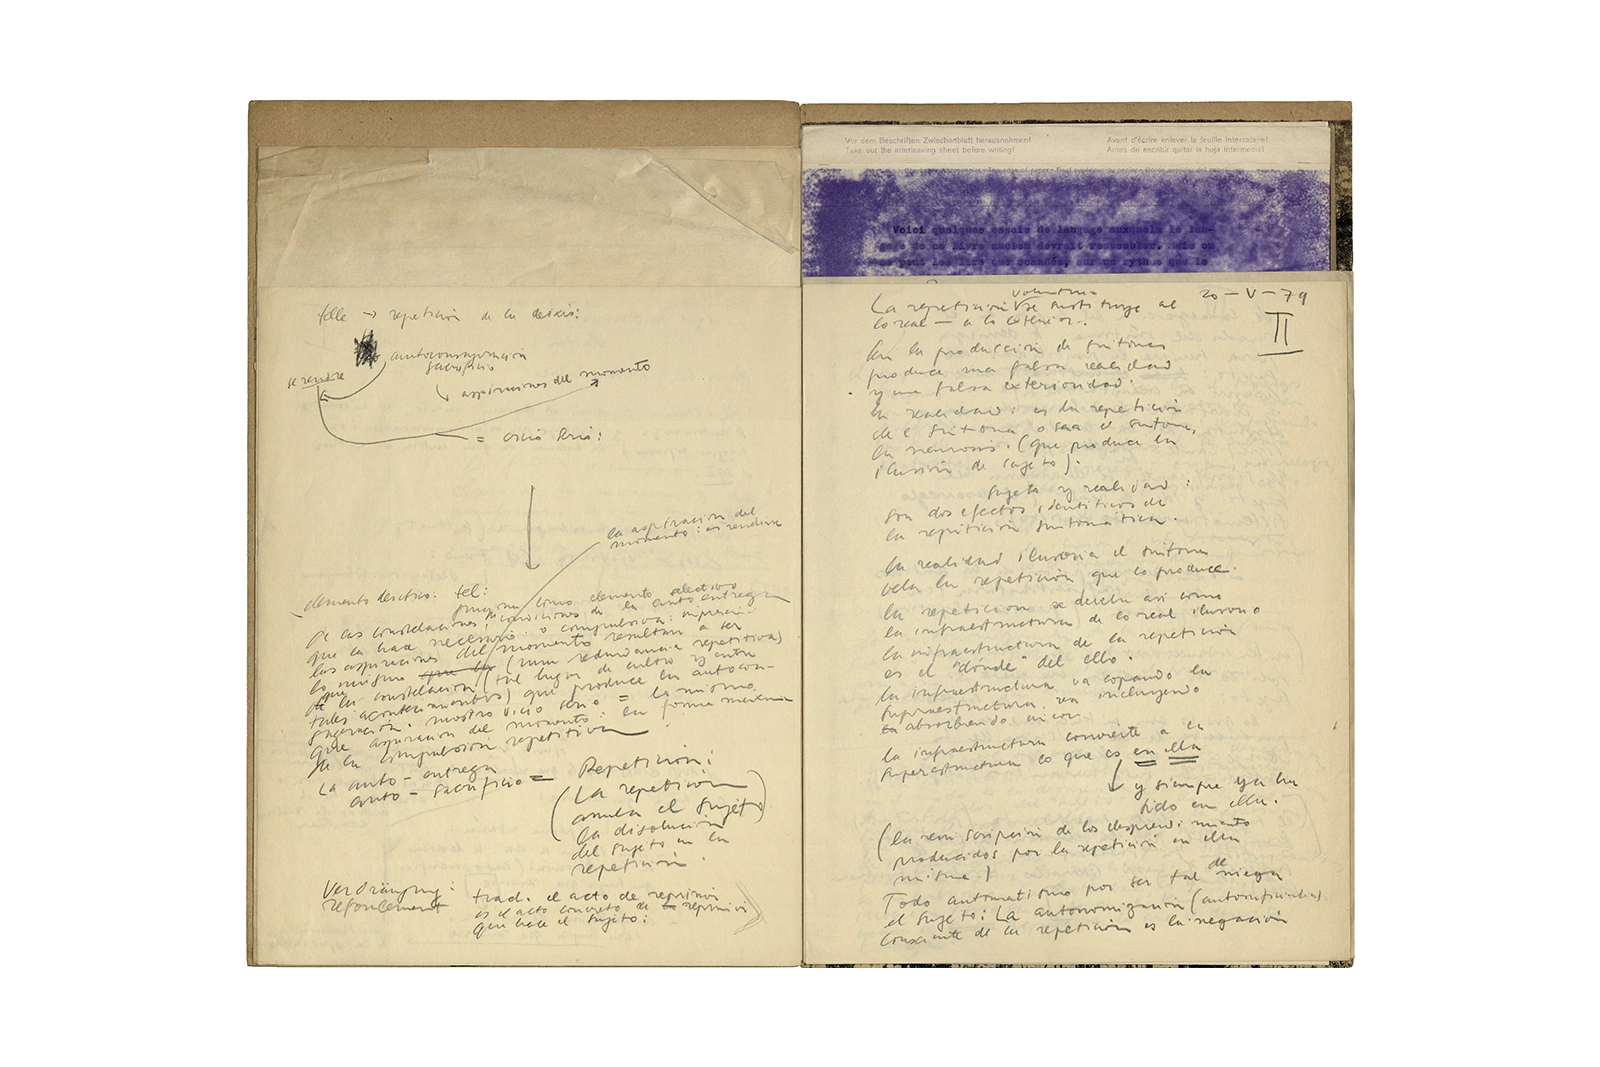 → repetición de la
autoconsagración
sacrificio
se rendre
aspiraciones del momento
= ocio serio:
la aspiración del
momento: es rendirse
elemento deíctico: tel:
funciona como elemento selectivo
de las constelaciones, condiciones de la auto entrega
que la hace necesaria o compulsiva:
las aspiraciones del momento resultan a ser
lo mismo (una redundancia repetitiva)
de la constelación (tal lugar de culto y entre
tales acontecimientos) que produce la autocon-
sagración. nuestro ocio serio = lo mismo
que aspiración del momento: en forma
de la compulsión repetitiva
La auto-entrega
auto-sacrificio =
Repetición:
(La repetición
anula el sujeto)
la disolución
del sujeto en la
repetición.
Verdrängung:
refoulement
trad. el acto de reprimir
es el acto concreto de reprimir
que hace el sujeto:
Vor dem Beschriften Zwischenblatt herausnehmen!
Take out the interleaving sheet before writing!
Avant d'écrire enlever la feuille intercalaire!
Antes de escribir quitar la hoja intermedia!
Voici quelques essais de langage auxquels le lan-
gage de ce livre ancien devrait ressembler. Mais on
ne peut les lire que scandés, sur un rythme que le
20-V-79
II
La repetición se sustituye al
lo real — a lo exterior.
En la producción de síntomas
produce una falsa realidad
y una falsa exterioridad.
la realidad: es la repetición
del síntoma o sea el síntoma,
la neurosis. (que produce la
ilusión de sujeto).
Sujeto y realidad:
son dos efectos identicos de
la repetición sintomática.
la realidad ilusoria el síntoma
vela la repetición que lo produce.
la repetición se devela así como
la infraestructura de lo real ilusorio
la infraestructura de la repetición
es el "donde" del ello.
la infraestructura va copando la
supraestructura, va incluyendo
absorbiendo
la infraestructura convierte a la
superestructura lo que es en ella
y siempre ya ha
sido en ella.
(la reinscripción de los desprendimiento
producidos por la repetición en ella
misma.)
Todo automatismo por ser tal niega
de
el sujeto: La autonomización
consciente de la repetición es la negación